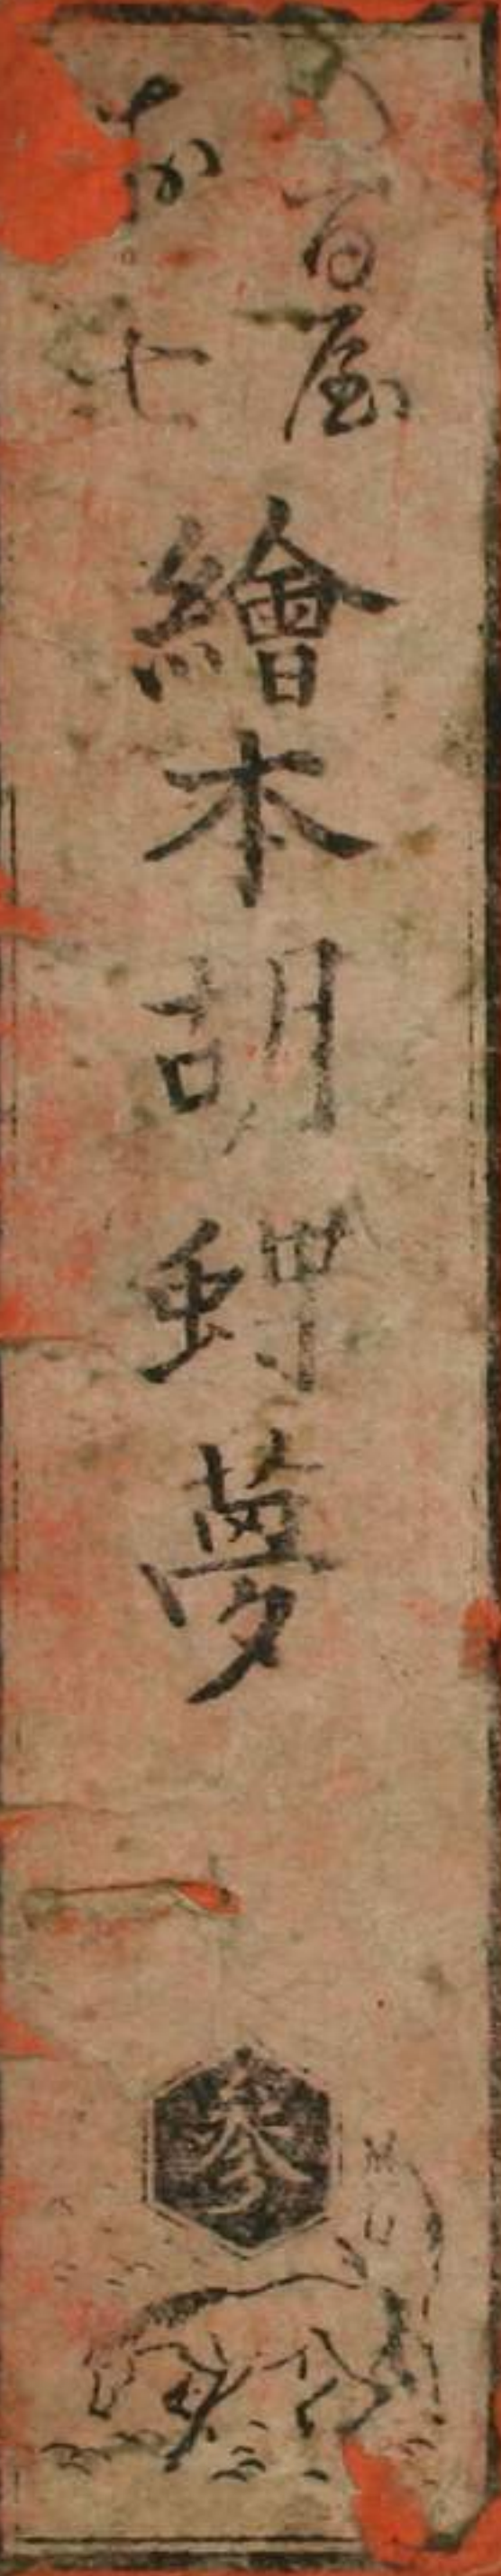 八百屋
お七
繪本胡蝶夢
参